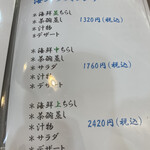 ＊海鮮並ちらし
＊茶碗蒸し
＊汁物
＊デザート
1320円(税込)
＊海鮮中ちらし
＊茶碗蒸し
＊サラダ
＊汁物
＊デザート
1760円(税込)
＊海鮮上ちらし
＊茶碗蒸し
＊汁物
＊サラダ
＊デザート
2420円(税込)